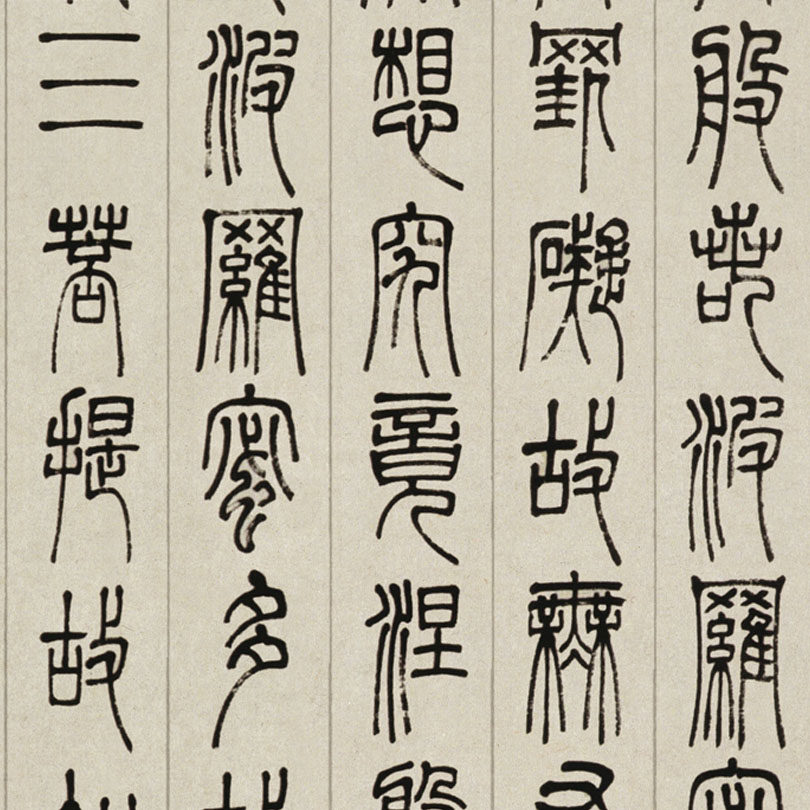 般若波羅
罣礙故無
想究竟涅
波羅蜜多
三菩提故